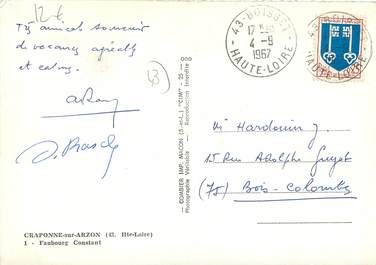 12 €
Très amical souvenir
de vacances agréables
et calmes.
43
43 - BOISSET
17 H
4 - 9
1967
HAUTE-LOIRE
COMBIER IMP. MACON (S.-et-L.) "CIM"
Photographie Véritable - Reproduction Interdite
Mr Hardouin
15 Rue Adolphe Guyot
(75) Bois-Colombes
CRAPONNE-sur-ARZON (43. Hte-Loire)
1 - Faubourg Constant